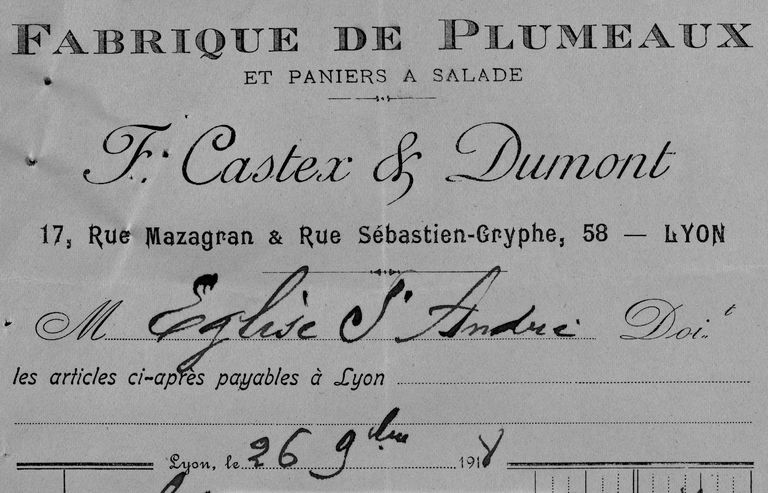 FABRIQUE DE PLUMEAUX
ET PANIERS A SALADE
F. Castex & Dumont
17, Rue Mazagran & Rue Sébastien-Gryphe, 58 — LYON
M Eglise St André Doit
les articles ci-après payables à Lyon
Lyon, le 26 9bre 191